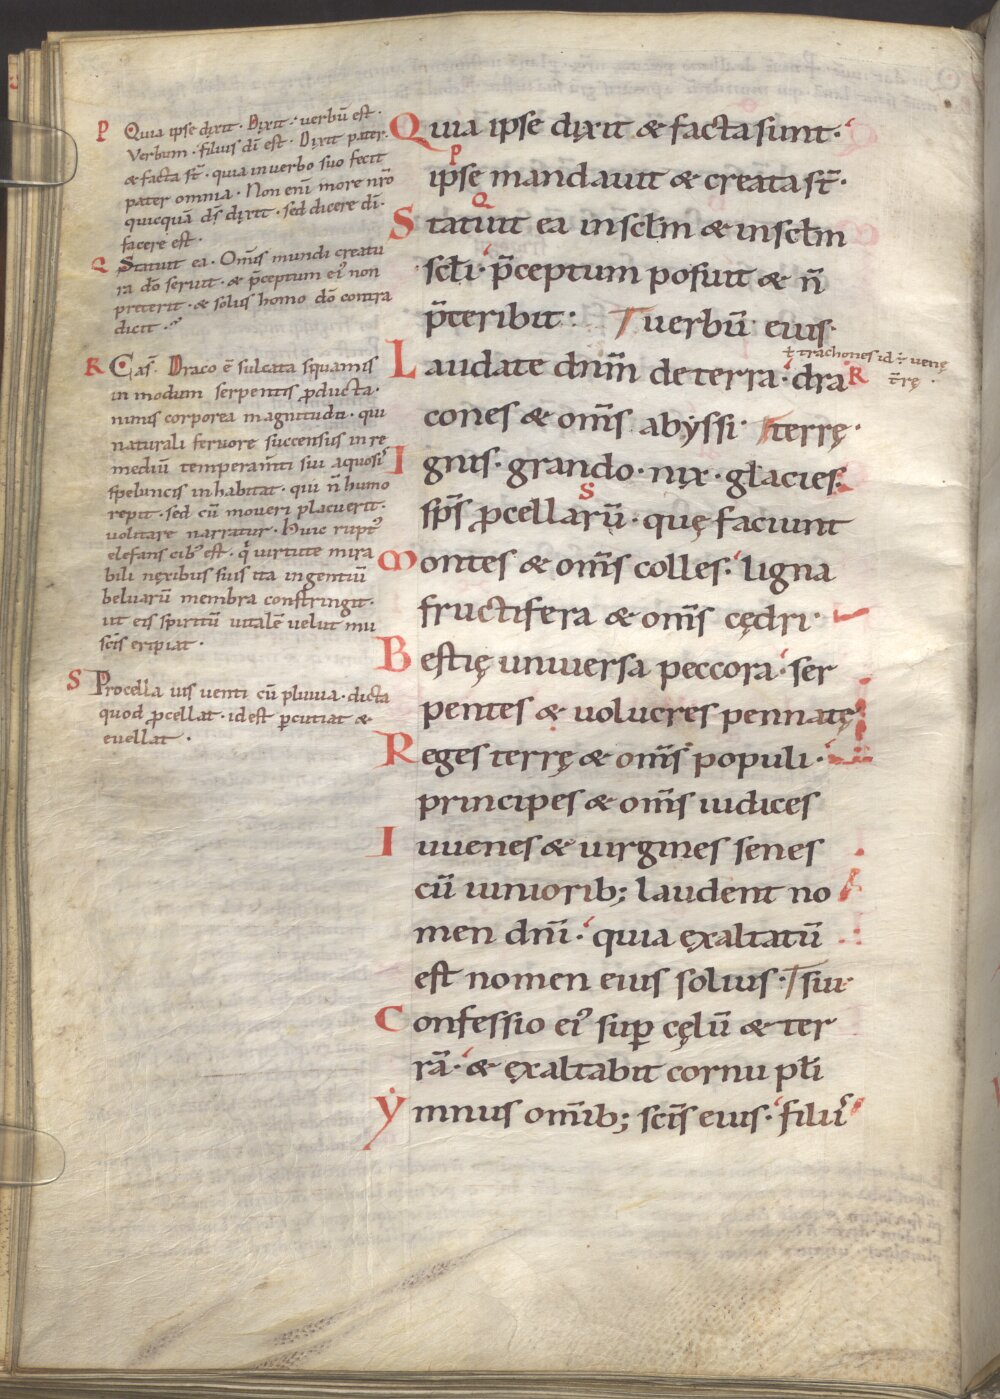 P Quia ipse dixit · Dixit · verbū est ·
Verbum · filius dī est · Dixit pater ·
& facta st̄ · quia in verbo suo fecit
pater omnia · Non enī more nr̄o
quicquā ds̄ dixit · sed dicere dī ·
facere est ·
Q Statuit ea · Om̄is mundi creatu
ra dō seruit · & p̄ceptum ei᾽ non
preterit · & solus homo dō contra
dicit ·
R Cas̄ · Draco ē sulcata squamis
in modum serpentis ꝓducta ·
nimis corporea magnitudīī · qui
naturali feruore succensus in re
mediū temperam̄ti sui aquosis
speluncis inhabitat · qui n̄ humo
repit · sed cū moueri placuerit ·
volitare narratur · Huic rupt᾽
elefans cib᾽ est · q̄ virtute mira
bili nęxibus suis ita ingentiū
beluarū membra constringit ·
ut eis spiritū vitalē velut mu
scīs eripiat ·
S Procella vis venti cū pluuia · dicta
quod ꝓcellat · id est ꝑcutiat &
euellat ·
Quia ipse dixit & facta sunt ·
P
ipse mandauit & creata st̄ ·
Q
Statuit ea in sclm̄ & in sclm̄
sclī · p̄ceptum posuit & n̄
p̄teribit : T uerbū eius ·
ł trachones id ÷ venę
t̄rę ·
Laudate dn̄m de terra · dra R
cones & om̄s abyssi · terrę ·
Ignis · grando · nix · glacies ·
S
sp̄s ꝓcellarū · quę faciunt
Montes & om̄s colles · ligna
fructifera & om̄s cędri ·
Bestię uniuersa peccora · ser
pentes & uolucres pennatę
Reges terrę & om̄s populi ·
principes & om̄s iudices
Iuuenes & uirgines senes
cū iuniorib; laudent no
men dn̄i · quia ęxaltatū
est nomen eius solius · T sui ·
Confessio ei᾽ suꝑ cęlū & ter
rā · & ęxaltabit cornu płi
Ymnus om̄ib; scīs eius · filiis